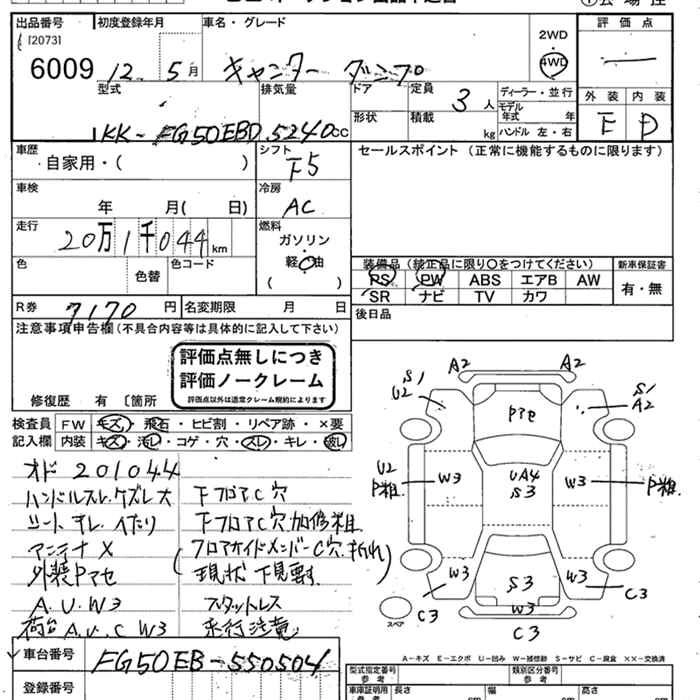 出品番号 初度登録年月 車名・グレード 2WD 評価点
[2073] 4WD
6009 12年5月 キャンター ダンプ
型式 排気量 ドア 定員 3人 ディーラー・並行 外装 内装
モデル年式 年
KK-FG50EBD 5240cc 形状 積載 kg ハンドル 左・右 E D
車歴 シフト セールスポイント(正常に機能するものに限ります)
自家用・( ) F5
車検 冷房
年 月( 日) AC
走行 燃料
20万1千044km ガソリン
軽油
色 色替 色コード ( )
装備品(純正品に限り○をつけてください) 新車保証書
PS PW ABS エアB AW 有・無
SR ナビ TV カワ
R券 7170円 名変期限 月 日 後日品
注意事項申告欄(不具合内容等は具体的に記入して下さい)
評価点無しにつき
評価ノークレーム
評価点以外は通常クレーム規約によります
修復歴 有 〔箇所
検査員 FW キズ・飛石・ヒビ割・リペア跡・×要
記入欄 内装 キズ・汚レ・コゲ・穴・スレ・キレ・
オド 201044
ハンドルスレ.ケズレ大 下フロアC穴
シート ヨレ ヘたり 下フロアC穴.加修粗.
アンテナ X (フロアサイドメンバーC穴.折れ)
外装Pアセ 現状 下見要
A.U.W3 スタットレス
荷台A.U.C W3 走行注意
A2 A2
S1 S1
U2 A2
Pアセ
U2 W3 UA4 W3 P粗
P粗. S3
W3 S3 W3
C3 W3 C3
スペア C3
A-キズ E-エクボ U-凹み W-補修跡 S-サビ C-腐食 XX-交換済
車台番号 FG50EB-550504
型式指定番号 類別区分番号
参考 参考
登録番号 車庫証明用 長さ 幅 高さ